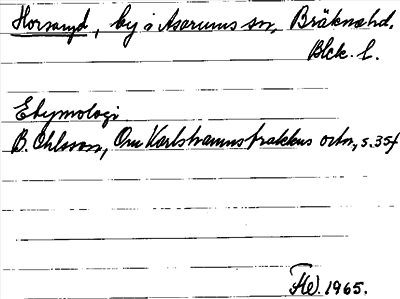 Horsaryd, by i Asarums sn, Bräknehd.
Blek. l.
Etymologi
B. Ohlsson, Om Karlshamnstraktens ortn, s. 35f
HW. 1965.